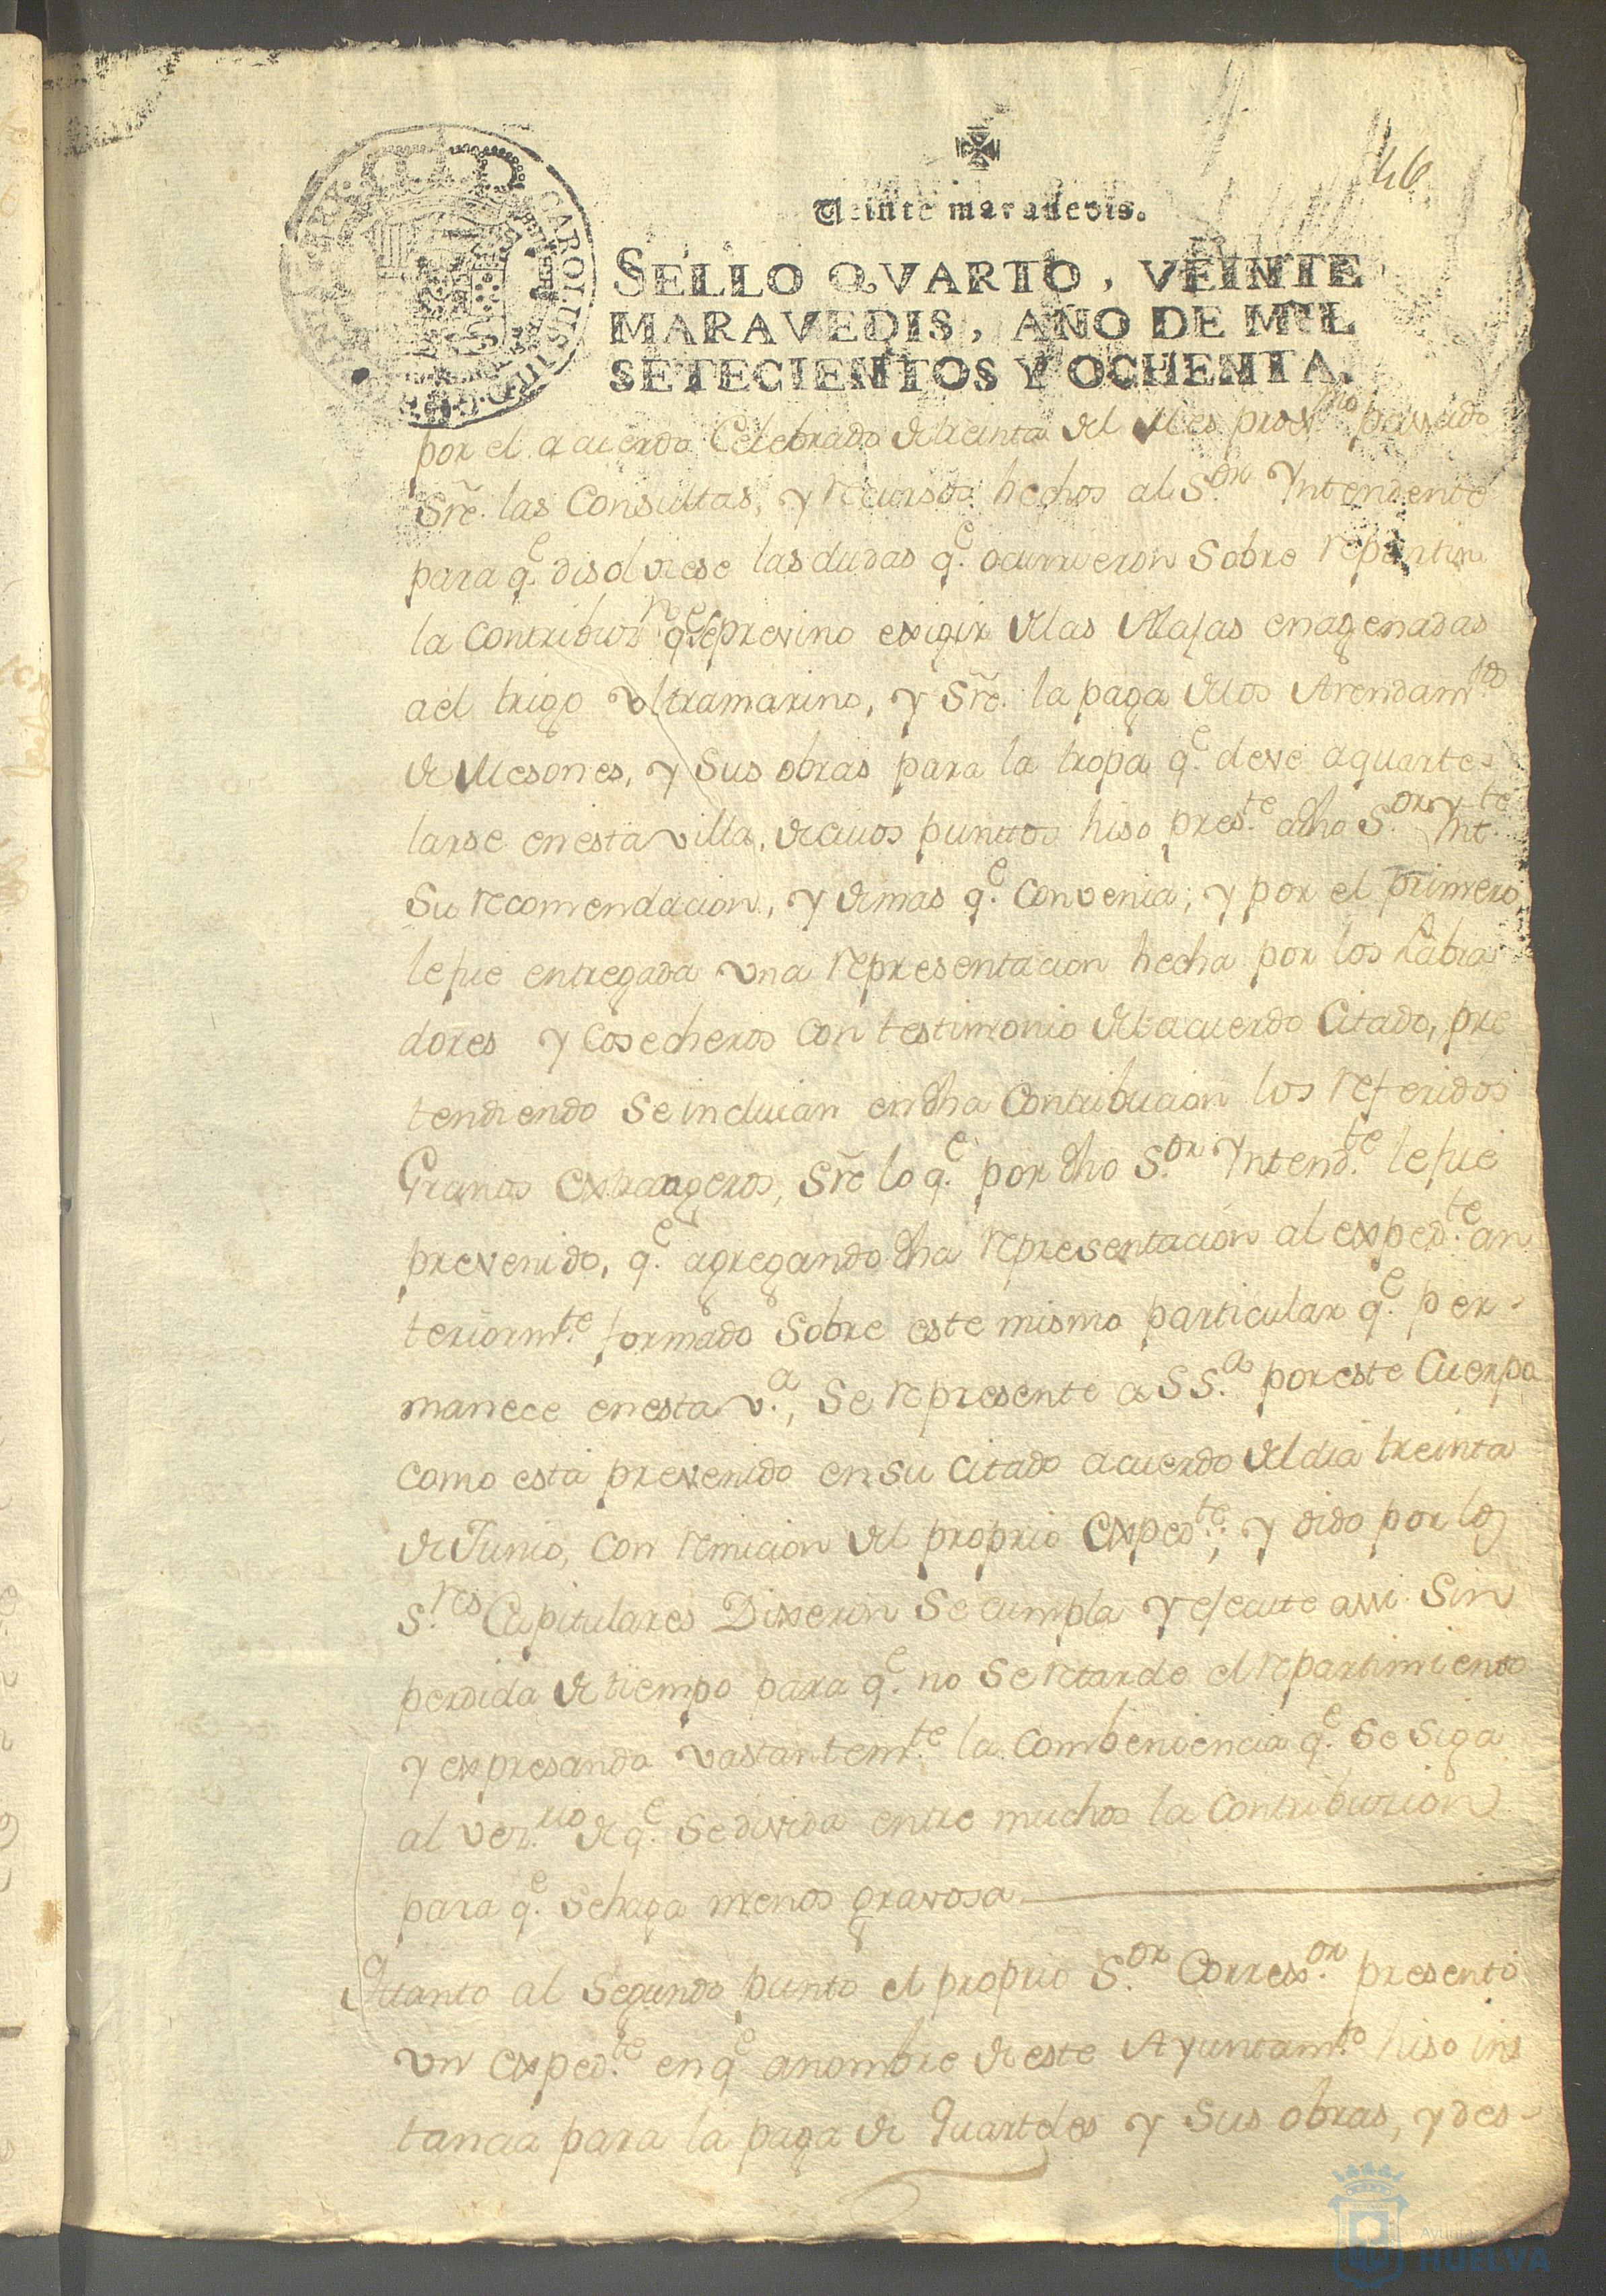 46
Veinte maravedis.
SELLO QVARTO, VEINTE
MARAVEDIS, AÑO DE MIL
SETECIENTOS Y OCHENTA.
CAROLUS III D G
por el acuerdo Celebrado de treinta del Mes proxmo. passado
Sre. las Consultas, y recursos hechos al Sor. Yntendente
para qe. disolviese las dudas qe. ocurrieron Sobre repartir
la Contribuzn. qe. se previno exigir de las Alajas enagenadas
a el trigo vltramarino, y Sre. la paga de los Arendamtos
de Mesones, y Sus obras para la tropa qe. deve aquarte-
larse en esta villa, de cuios punttos hiso preste. a dho Sor. Yntte.
Su recomendacion, y demas qe. Convenia; y por el primero
le fue entregada vna representacion hecha por los Labra
dores y Cosecheros Con testimonio del acuerdo Citado, pre
tendiendo Se incluian en dha Contribucion los referidos
Granos extrangeros, Sre lo qe. por dho Sor. Yntendte. le fue
prevenido, qe. agregando dha representacion al expedte. an
teriormte. formado Sobre este mismo particular qe. per-
manece en esta va., Se represente a SSa. por este Cuerpo
como esta prevenido en su Citado acuerdo del dia treinta
de Junio, Con remicion del proprio expedte.; y oido por los
Sres Capitulares Dixeron Se cumpla y ejecute assi Sin
perdida de tiempo para qe. no Se retarde el repartimiento
y expresando vastantemte. la Combeniencia qe. Se Siga
al vezrio. de qe. Se divida entre muchos la Contribucion
para qe. Se haga menos gravosa.
Qtanto al Segundo punto el proprio Sor. Corregor. presento
vn expedte. en qe. a nombre de este Ayuntamto. hiso ins
tancia para la paga de Quarteles y Sus obras, y des-
Ayuntamiento
HUELVA